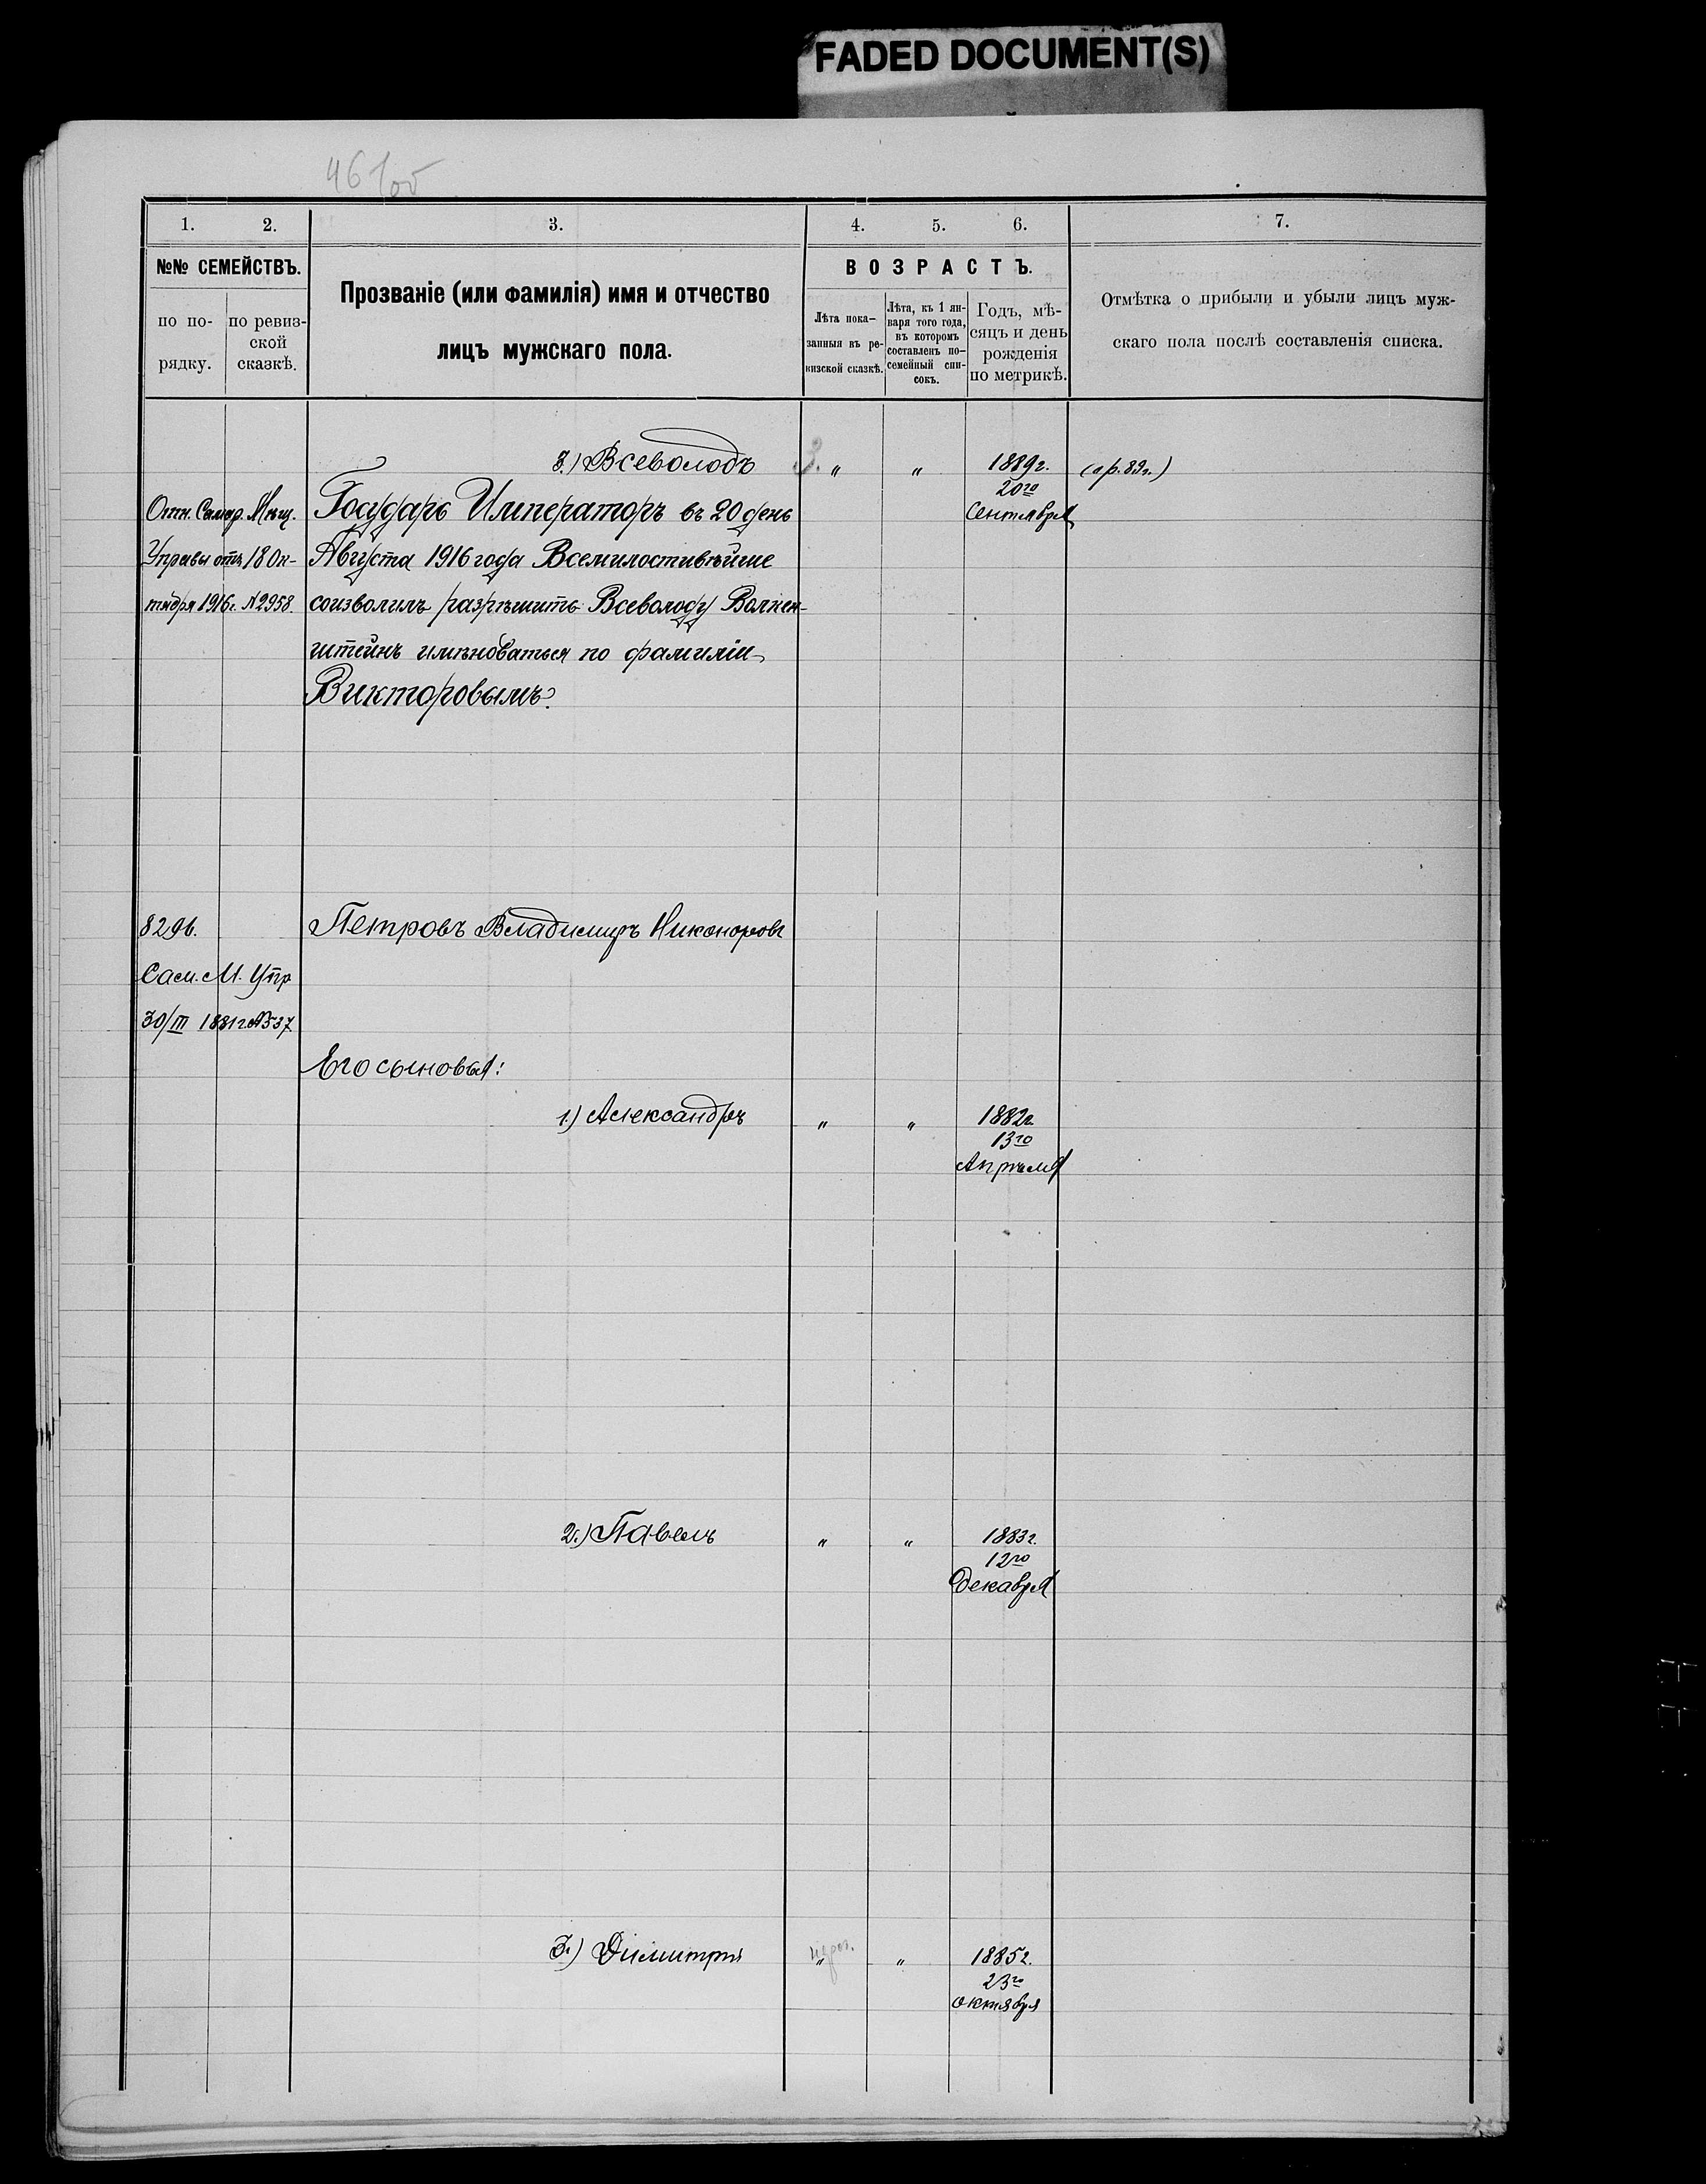 FADED DOCUMENT(S)
46 об
1. 2. 3. 4. 5. 6. 7.
№№ СЕМЕЙСТВЪ.
по по-
рядку.
по ревиз-
ской
сказкѣ.
Прозваніе (или фамилія) имя и отчество
лицъ мужскаго пола.
ВОЗРАСТЪ.
Лѣта пока-
занныя въ ре-
визской сказкѣ.
Лѣта, къ 1 ян-
варя того года,
въ которомъ
составленъ по-
семейный спи-
сокъ.
Годъ, мѣ-
сяцъ и день
рожденія
по метрикѣ.
Отмѣтка о прибыли и убыли лицъ муж-
скаго пола послѣ составленія списка.
3.) Всеволодъ 3. „ „ 1889 г. (пр. 89 г.)
20го
Сентября
Отн. Самар. Мѣщ.
Управы отъ 18 Ок-
тября 1916 г. №2958.
Государь Императоръ въ 20 день
Августа 1916 года Всемилостивѣйше
соизволилъ разрѣшить Всеволоду Волкен-
штейнъ именоваться по фамиліи
Викторовымъ.
829б. Петровъ Владимиръ Никоноровъ
Сам. М. Упр
30/III 1881 г. №537
Его сыновья:
1.) Александръ „ „ 1882 г.
13го
Апрѣля
2.) Павелъ „ „ 1883 г.
12го
Декабря
3.) Димитрія „ „ 1885 г.
23го
октября